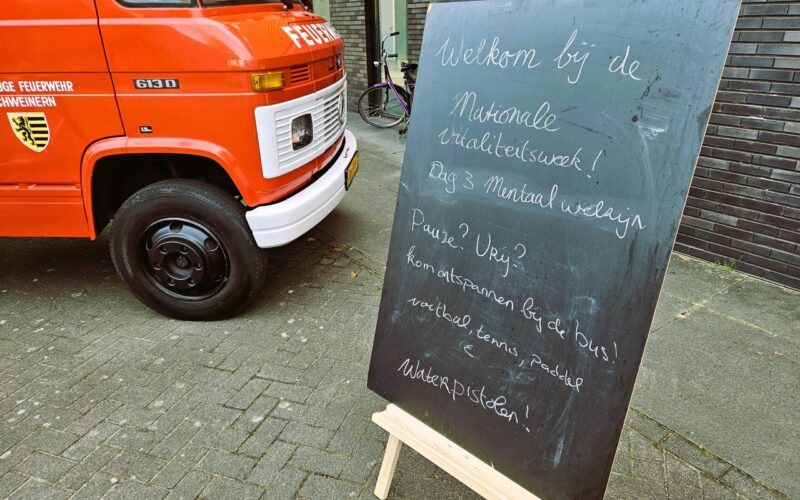 FEUERW
613 D
IGE FEUERWEHR
CHWEINERN
Welkom bij de
Nationale
vitaliteitsweek!
Dag 3 Mentaal welzijn
Pauze? Vrij?
kom ontspannen bij de bus!
voetbal, tennis, paddel
&
Waterpistolen!